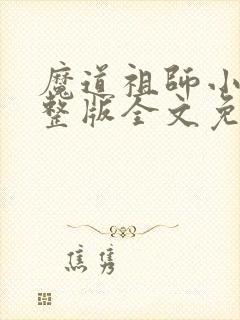 魔道祖師小
整版全文免
焦隽